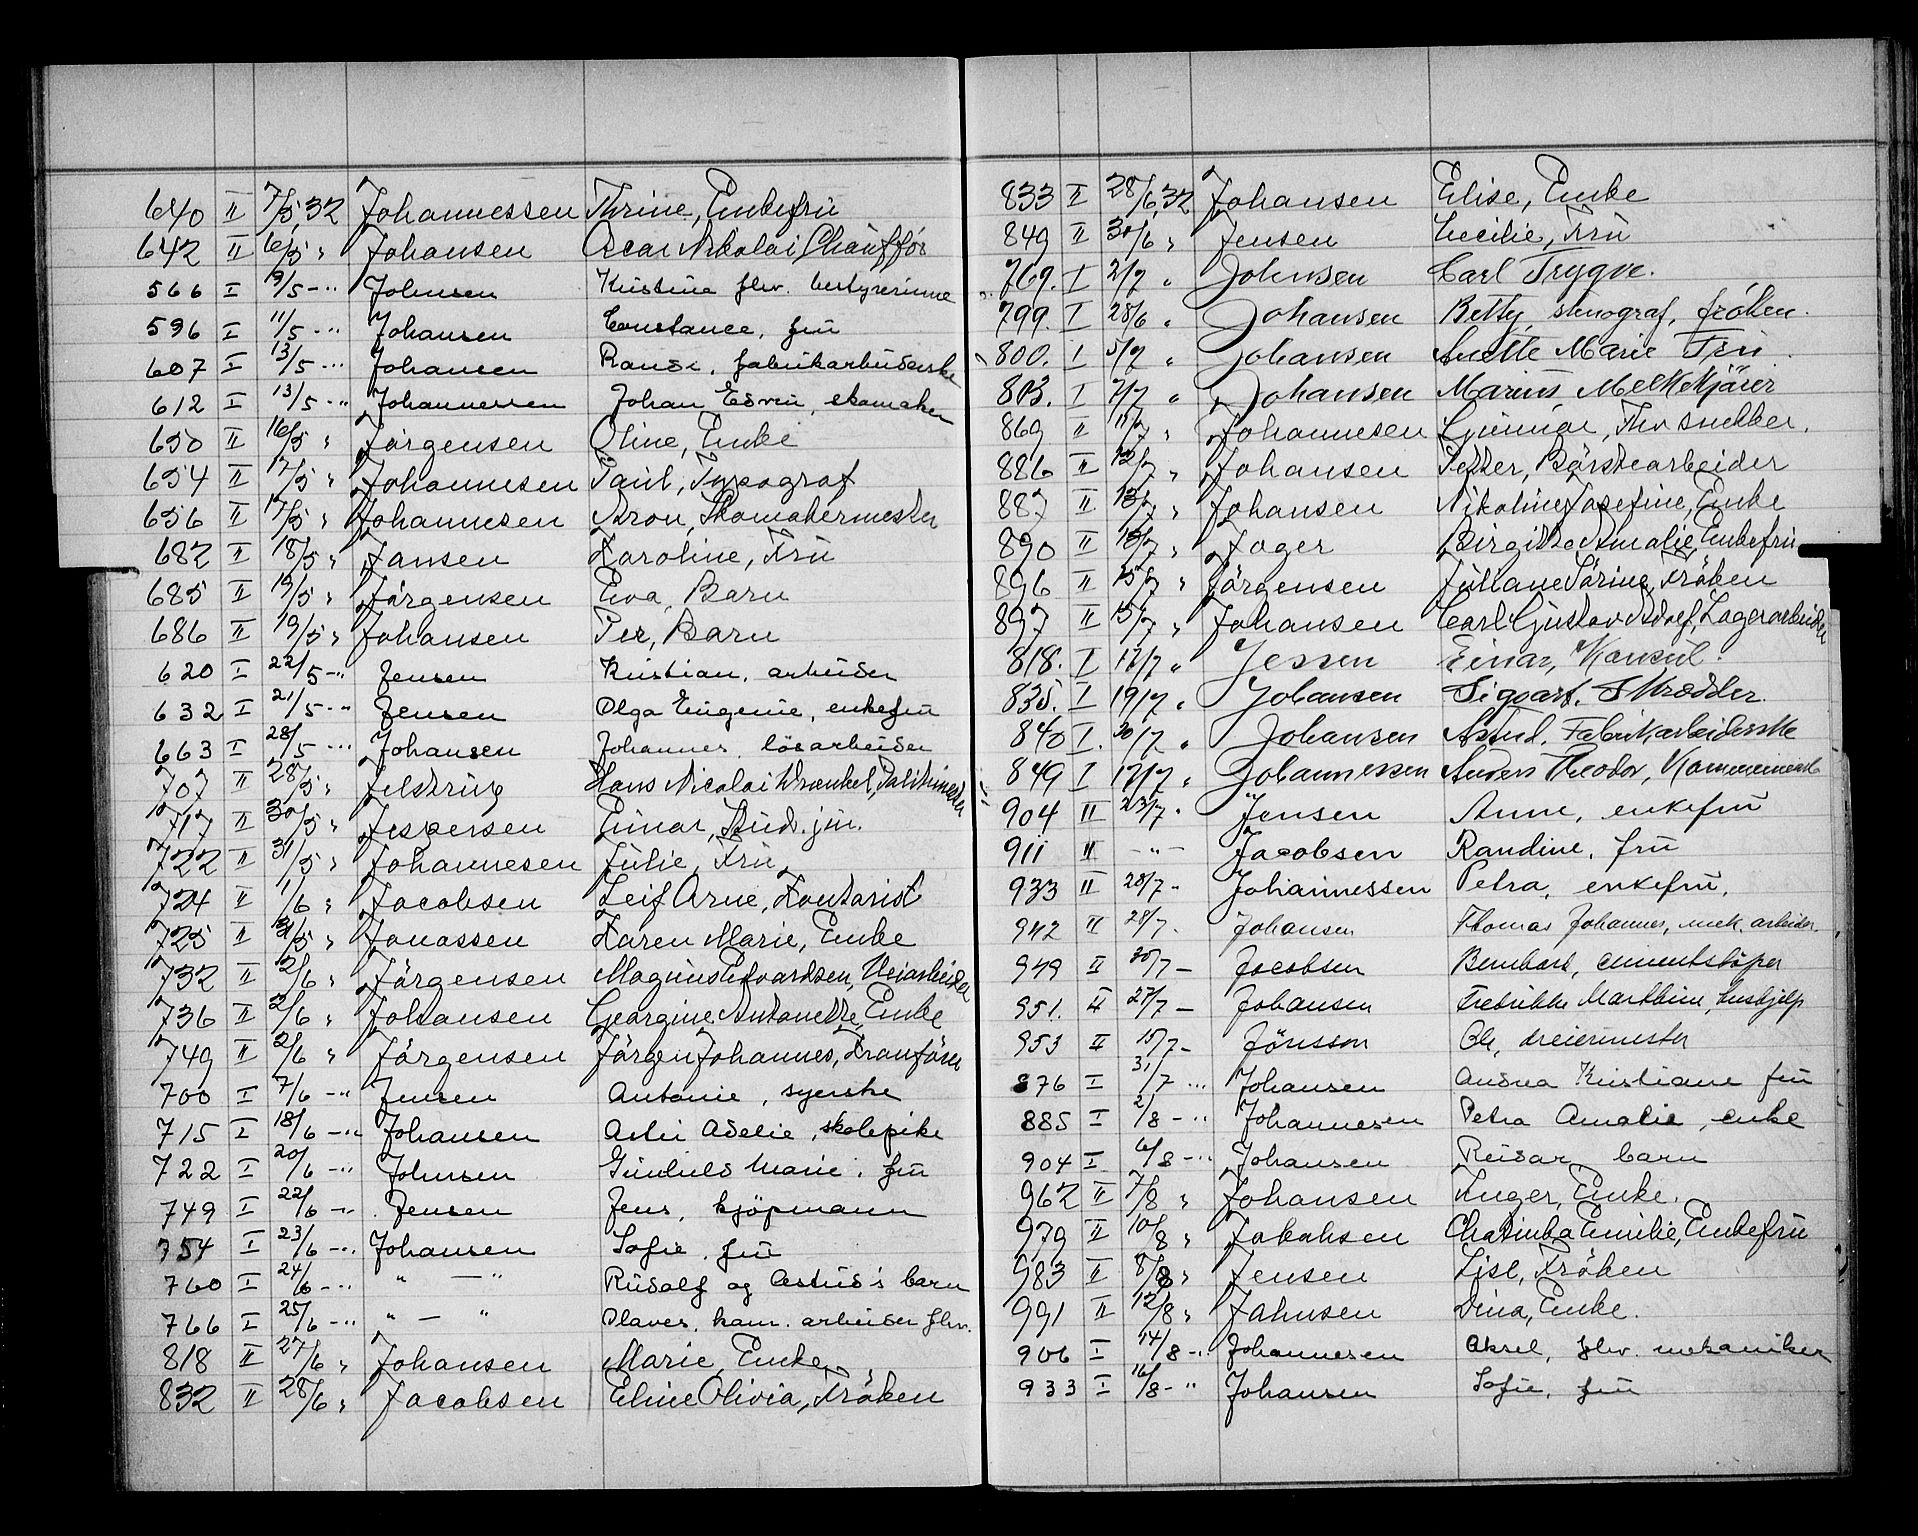 640 II 7/5 32 Johannessen Thrine, Enkefru
642 II 6/5 " Johansen Oscar Nikolai Chauffør
566 I 9/5 -"- Johnsen Kristine fhv. bestyrerinne
596 I 11/5 -"- Johansen Constance, fru
607 I 13/5 -"- Johansen Randi, fabrikarbeiderske
612 I 13/5 -"- Johannessen Johan Edvin, skomaker
650 II 16/5 " Jørgensen Oline, Enke
654 II 17/5 " Johannesen Paul, Typograf
656 II 17/5 " Johannesen Aron, Skomakermester
682 II 18/5 " Jansen Karoline, Fru
685 II 19/5 " Jørgensen Eva, Barn
686 II 19/5 " Johansen Per, Barn
620 I 22/5 -"- Jensen Kristian, arbeider
632 I 21/5 -"- Jensen Olga Eugenie, enkefru
663 I 28/5 -"- Johansen Johannes, løsarbeider
707 II 28/5 " Jelstrup Hans Nicolai Wrankel,
717 II 30/5 " Jespersen Einar, Stud. jur.
722 II 31/5 " Johannesen Julie, Fru
724 II 1/6 " Jacobsen Leif Arne, Kontorist
725 II 31/5 " Jonassen Karen Marie, Enke
732 II 2/6 " Jørgensen Magnus Edvardsen, Veiarbeider
736 II 2/6 " Johansen Georgine Antonette, Enke
749 II 2/6 " Jørgensen Jørgen Johannes, Kranfører
700 I 7/6 -"- Jensen Antonie, syerske
715 I 18/6 -"- Johansen Adelie, skolepike
722 I 20/6 -"- Johnsen Gunhild Marie, fru
749 I 22/6 -"- Jensen Jens, kjøpmann
754 I 23/6 -"- Johansen Sofie, fru
760 I 24/6 -"- " — " Rudolf og Astrid's barn
766 I 25/6 -"- " — " Olaves, kom. arbeider fhv.
818 II 27/6 " Johansen Marie, Enke
832 II 28/6 " Jacobsen Eline Olivia, Frøken
833 II 28/6 32 Johansen Elise, Enke
849 II 30/6 " Jensen Cecilie, Fru
769. I 2/7 " Johnsen Carl Trygve.
799. I 28/6 " Johansen Betty, stenograf, frøken.
800. I 5/7 " Johansen Anette Marie Fru.
803. I 7/7 " Johansen Marius Melkekjører
869 II 11/7 " Johannesen Gunnar, Fhv snekker.
886 II 12/7 " Johansen Petter, Børstearbeider
887 II 13/7 " Johansen Nikoline Josefine, Enke
890 II 13/7 " Jager Birgitte Amalie, Enkefru
896 II 15/7 " Jørgensen Juliane Sørine, Frøken
897 II 15/7 " Johansen Carl Gustav Adolf, Lagerarbeider
818. I 17/7 " Jessen Einar, Konsul.
835. I 19/7 " Johansen Sigvart, Skrædder.
840 I. 20/7 " Johansen Astrid, Fabrikarbeiderske
849 I 17/7 " Johannessen Anders Theodor,
904 II 23/7 " Jensen Anne, enkefru
911 II -"- Jacobsen Randine, fru
933 II 28/7 - Johannessen Petra, enkefru.
942 II 28/7. Johansen Thomas Johannes, mek. arbeider.
949 II 30/7 - Jacobsen Bernhart, cementstøper
951. II 27/7 - Johansen Fredrikke Marthine, hushjelp
953 II 15/7 - Jönsson Ole, dreiermester
876 I 31/7 -"- Johansen Andrea Kristiane fru
885 I 2/8 -"- Johannesen Petra Amalie, enke
904 I 6/8 -"- Johansen Reidar, barn
962 II 7/8 " Johansen Inger, Enke.
979 II 10/8 " Jakobsen Chatinka Emilie, Enkefru
983 II 8/8 " Jensen Lise, Frøken
991 II 12/8 " Jahnsen Dina, Enke.
906 I 14/8 -"- Johannesen Aksel, fhv. mekaniker
933 I 16/8 -"- Johansen Sofie, fru